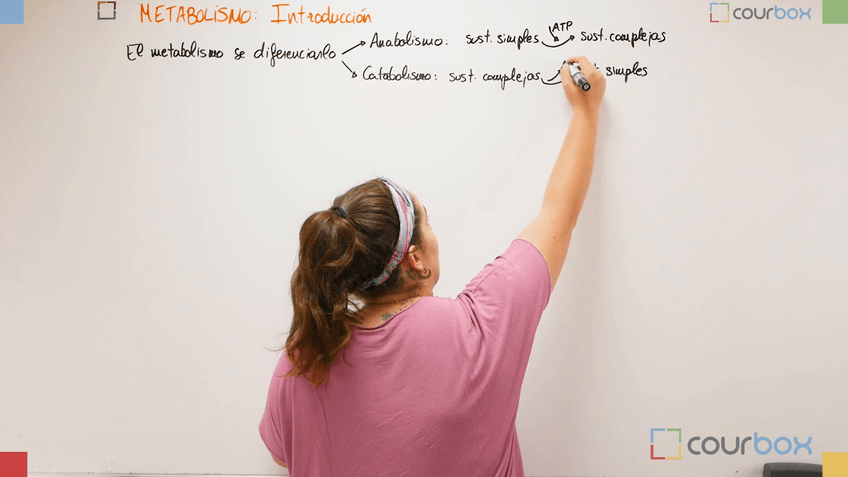 METABOLISMO: Introducción
courbox
ATP
El metabolismo se diferencia → Anabolismo: sust. simples → sust. complejas
Catabolismo: sust. complejas → simples
courbox